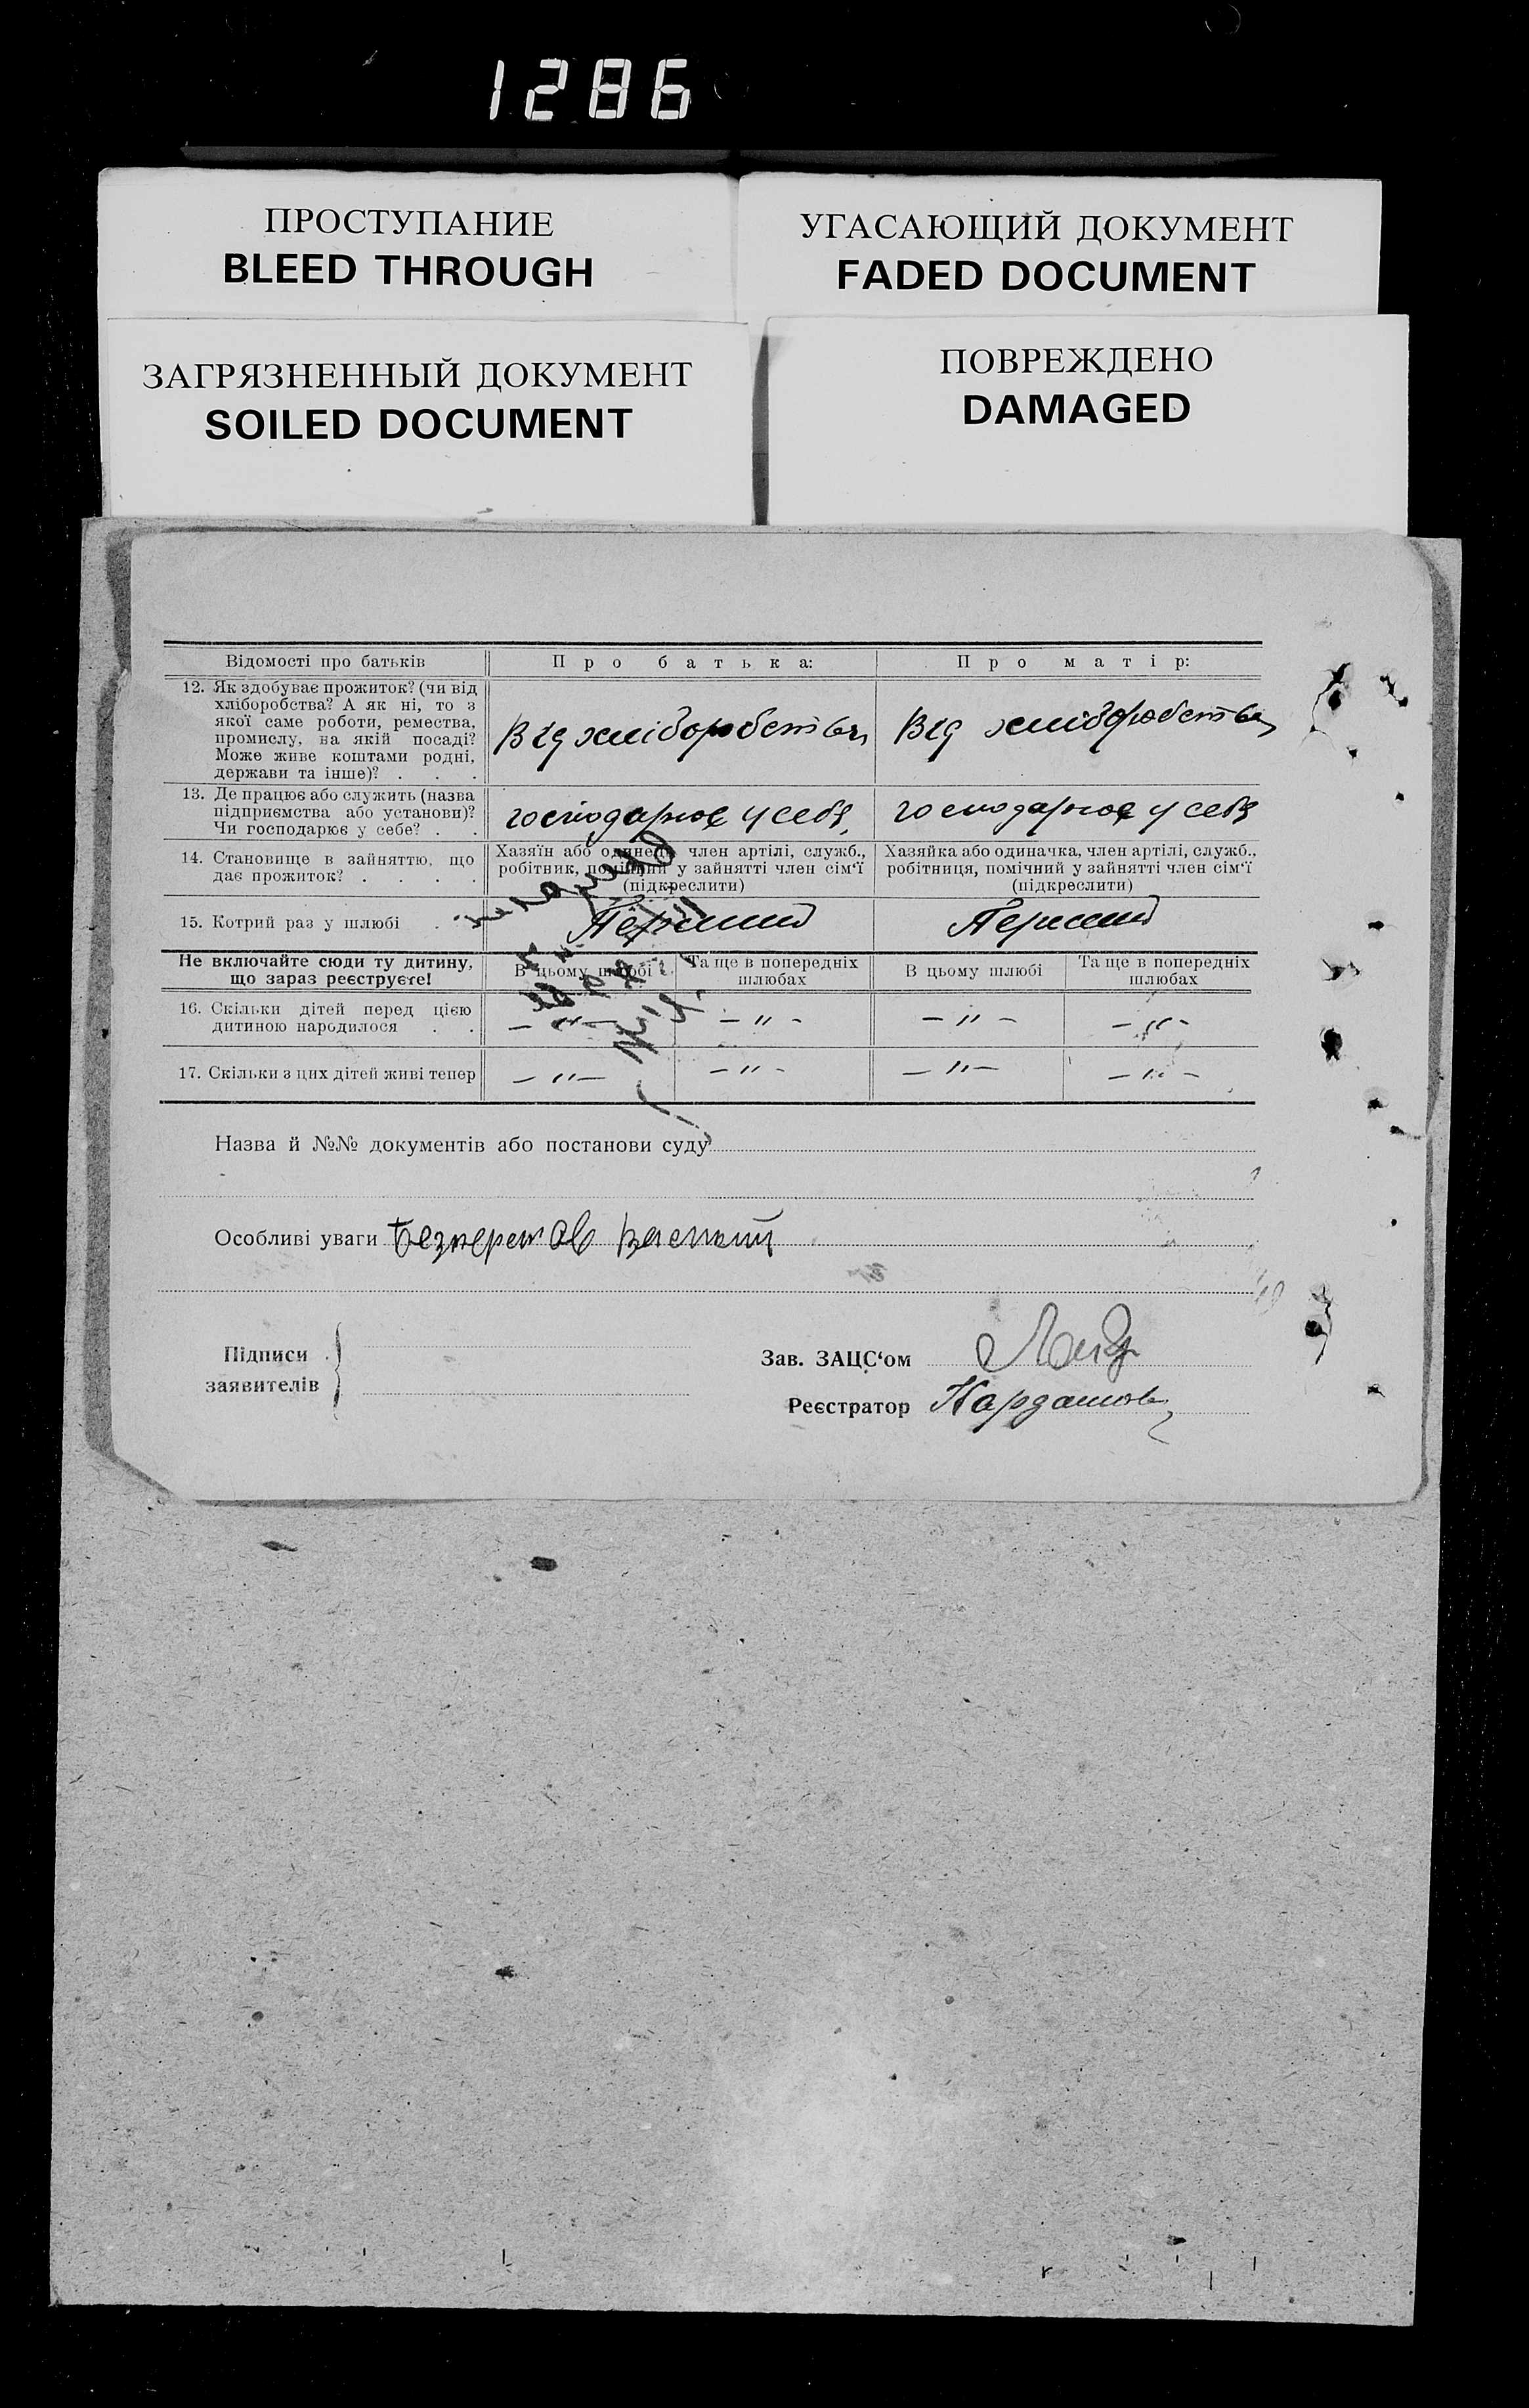 1286
ПРОСТУПАНИЕ
BLEED THROUGH
УГАСАЮЩИЙ ДОКУМЕНТ
FADED DOCUMENT
ЗАГРЯЗНЕННЫЙ ДОКУМЕНТ
SOILED DOCUMENT
ПОВРЕЖДЕНО
DAMAGED
Відомості про батьків
Про батька:
Про матір:
12. Як здобуває прожиток? (чи від
хліборобства? А як ні, то з
якої саме роботи, ремества,
промислу, на якій посаді?
Може живе коштами родні,
держави та інше)? . . .
Від хліборобства
Від хліборобства
13. Де працює або служить (назва
підприємства або установи)?
Чи господарює у себе? . .
господарює у себя
господарює у себя
14. Становище в зайняттю, що
дає прожиток? . . . .
Хазяїн або одинець, член артілі, служб.,
робітник, помічний у зайнятті член сім‘ї
(підкреслити)
Хазяйка або одиначка, член артілі, служб.,
робітниця, помічний у зайнятті член сім‘ї
(підкреслити)
15. Котрий раз у шлюбі .
Перший
Перший
Не включайте сюди ту дитину,
що зараз реєструєте!
В цьому шлюбі
Та ще в попередніх
шлюбах
В цьому шлюбі
Та ще в попередніх
шлюбах
16. Скільки дітей перед цією
дитиною народилося . .
— " —
— " —
— " —
— " —
17. Скільки з цих дітей живі тепер
— " —
— " —
— " —
— " —
Назва й №№ документів або постанови суду
Особливі уваги
Підписи
заявителів
Зав. ЗАЦС‘ом
Реєстратор Кардашов